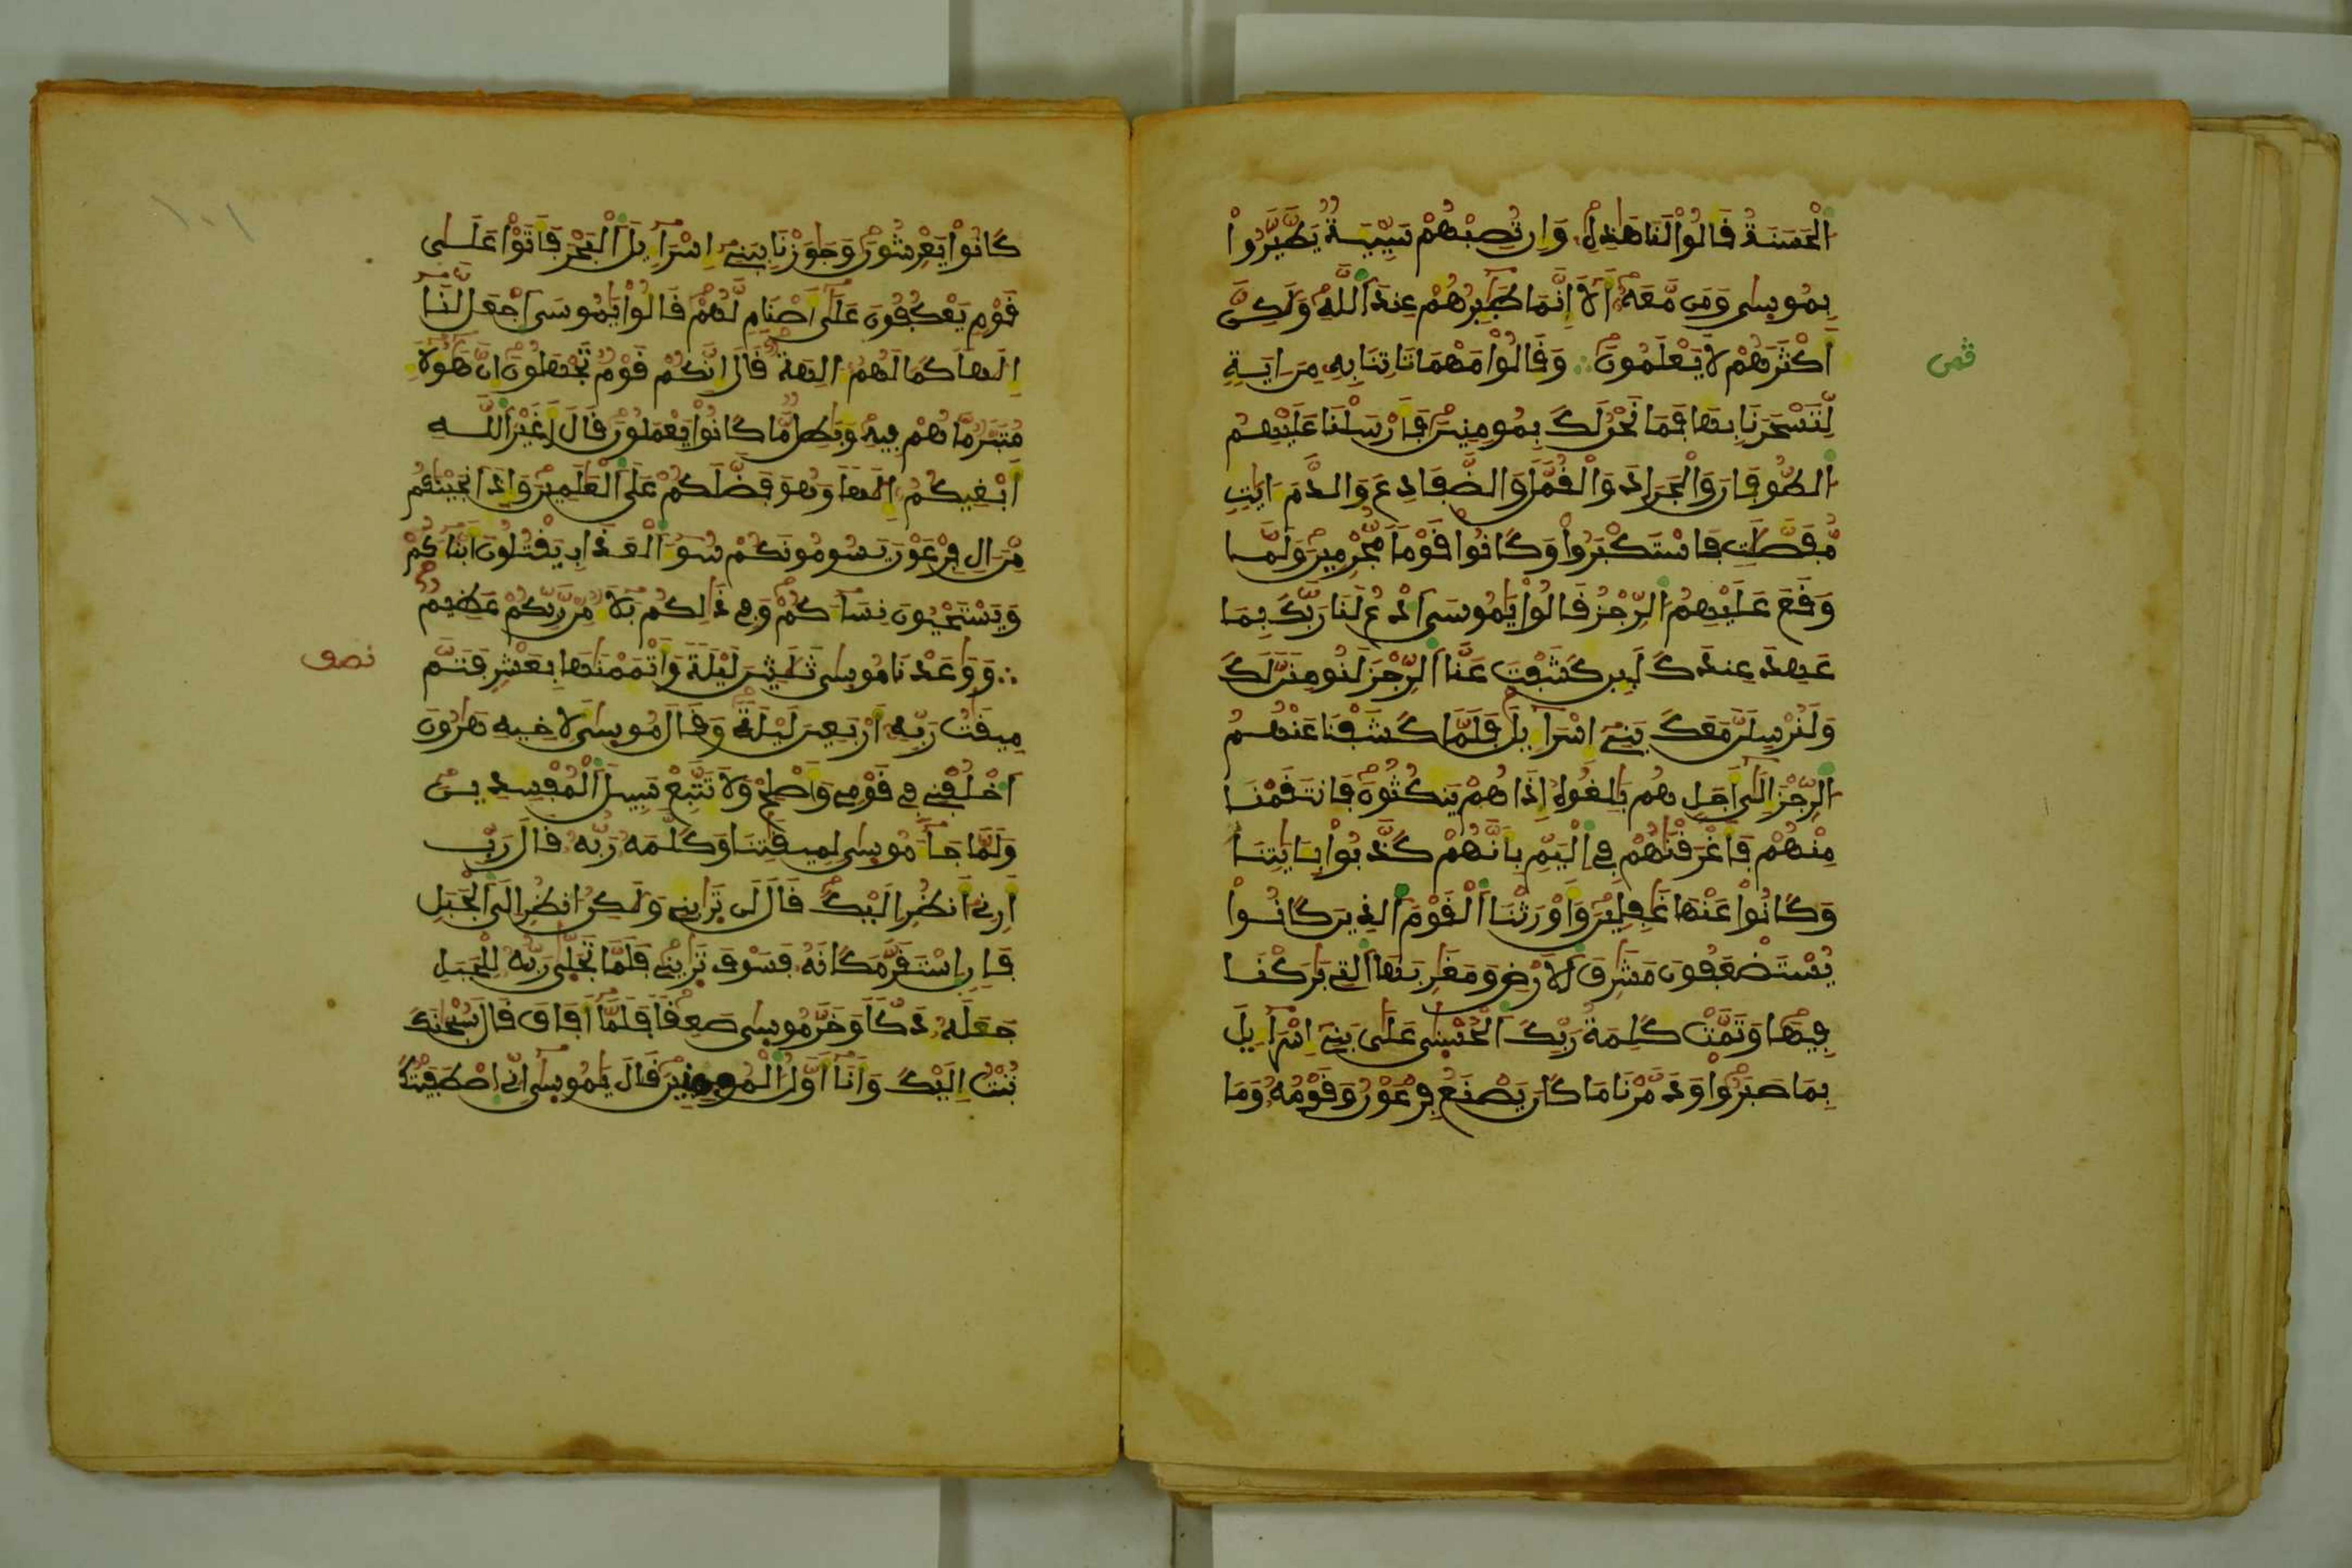 اَلْحَسَنَةُ قَالُواْ لَنَا هَٰذِهِۦ وَإِن تُصِبْهُمْ سَيِّئَةٌ يَطَّيَّرُواْ
بِمُوسىٰ وَمَن مَّعَهُۥ أَلَا إِنَّمَا طَٰٓئِرُهُمْ عِندَ اَللَّهِ وَلَٰكِنَّ
أَكْثَرَهُمْ لَا يَعْلَمُونَ ∴ وَقَالُواْ مَهْمَا تَاتِنَا بِهِۦ مِنَ ايَةٍ
ثمن
لِّتَسْحَرَنَا بِهَا فَمَا نَحْنُ لَكَ بِمُومِنِينَ فَأَرْسَلْنَا عَلَيْهِمُ
اَلطُّوفَانَ وَالْجَرَادَ وَالْقُمَّلَ وَالضَّفَادِعَ وَالدَّمَ ءَايَٰتٍ
مُّفَصَّلَٰتٍ فَاسْتَكْبَرُواْ وَكَانُواْ قَوْماً مُّجْرِمِينَ وَلَمَّا
وَقَعَ عَلَيْهِمُ اَلرِّجْزُ قَالُواْ يَٰمُوسَى اَدْعُ لَنَا رَبَّكَ بِمَا
عَهِدَ عِندَكَ لَئِن كَشَفْتَ عَنَّا اَلرِّجْزَ لَنُومِنَنَّ لَكَ
وَلَنُرْسِلَنَّ مَعَكَ بَنِىٓ إِسْرَٰٓءِيلَ فَلَمَّا كَشَفْنَا عَنْهُمُ
اَلرِّجْزَ إِلَىٰٓ أَجَلٍ هُم بَٰلِغُوهُ إِذَا هُمْ يَنكُثُونَ فَانتَقَمْنَا
مِنْهُمْ فَأَغْرَقْنَٰهُمْ فِى اِلْيَمِّ بِأَنَّهُمْ كَذَّبُواْ بِـَٔايَٰتِنَا
وَكَانُواْ عَنْهَا غَٰفِلِينَ وَأَوْرَثْنَا اَلْقَوْمَ اَلذِينَ كَانُواْ
يُسْتَضْعَفُونَ مَشَٰرِقَ اَلَارْضِ وَمَغَٰرِبَهَا اَلتِى بَٰرَكْنَا
فِيهَا وَتَمَّتْ كَلِمَةُ رَبِّكَ اَلْحُسْنىٰ عَلَىٰ بَنِىٓ إِسْرَٰٓءِيلَ
بِمَا صَبَرُواْ وَدَمَّرْنَا مَا كَانَ يَصْنَعُ فِرْعَوْنُ وَقَوْمُهُۥ وَمَا
١٠١
كَانُواْ يَعْرِشُونَ وَجَٰوَزْنَا بِبَنِىٓ إِسْرَٰٓءِيلَ اَلْبَحْرَ فَأَتَوْاْ عَلَىٰ
قَوْمٍ يَعْكُفُونَ عَلَىٰٓ أَصْنَامٍ لَّهُمْ قَالُواْ يَٰمُوسَى اَجْعَل لَّنَا
إِلَٰهاً كَمَا لَهُمُۥٓ ءَالِهَةٌ قَالَ إِنَّكُمْ قَوْمٌ تَجْهَلُونَ إِنَّ هَٰٓؤُلَآءِ
مُتَبَّرٌ مَّا هُمْ فِيهِ وَبَٰطِلٌ مَّا كَانُواْ يَعْمَلُونَ قَالَ أَغَيْرَ اَللَّهِ
أَبْغِيكُمُۥٓ إِلَٰهاً وَهُوَ فَضَّلَكُمْ عَلَى اَلْعَٰلَمِينَ وَإِذَ انجَيْنَٰكُم
مِّنَ الِ فِرْعَوْنَ يَسُومُونَكُمْ سُوٓءَ اَلْعَذَابِ يَقْتُلُونَ أَبْنَآءَكُمْ
وَيَسْتَحْيُونَ نِسَآءَكُمْ وَفِى ذَٰلِكُم بَلَآءٌ مِّن رَّبِّكُمْ عَظِيمٌ
∴ وَوَٰعَدْنَا مُوسىٰ ثَلَٰثِينَ لَيْلَةً وَأَتْمَمْنَٰهَا بِعَشْرٍ فَتَمَّ
نصف
مِيقَٰتُ رَبِّهِۦٓ أَرْبَعِينَ لَيْلَةً وَقَالَ مُوسىٰ لَأَخِيهِ هَٰرُونَ
اَخْلُفْنِى فِى قَوْمِى وَأَصْلِحْ وَلَا تَتَّبِعْ سَبِيلَ اَلْمُفْسِدِينَ
وَلَمَّا جَآءَ مُوسىٰ لِمِيقَٰتِنَا وَكَلَّمَهُۥ رَبُّهُۥ قَالَ رَبِّ
أَرِنِىٓ أَنظُرِ الَيْكَ قَالَ لَن تَرَٰينِى وَلَٰكِنُ انظُرِ الَى اَلْجَبَلِ
فَإِنِ اِسْتَقَرَّ مَكَانَهُۥ فَسَوْفَ تَرَٰينِى فَلَمَّا تَجَلّىٰ رَبُّهُۥ لِلْجَبَلِ
جَعَلَهُۥ دَكّاً وَخَرَّ مُوسىٰ صَعِقاً فَلَمَّا أَفَاقَ قَالَ سُبْحَٰنَكَ
تُبْتُ إِلَيْكَ وَأَنَا أَوَّلُ اَلْمُومِنِينَ قَالَ يَٰمُوسىٰٓ إِنِّى اِصْطَفَيْتُكَ